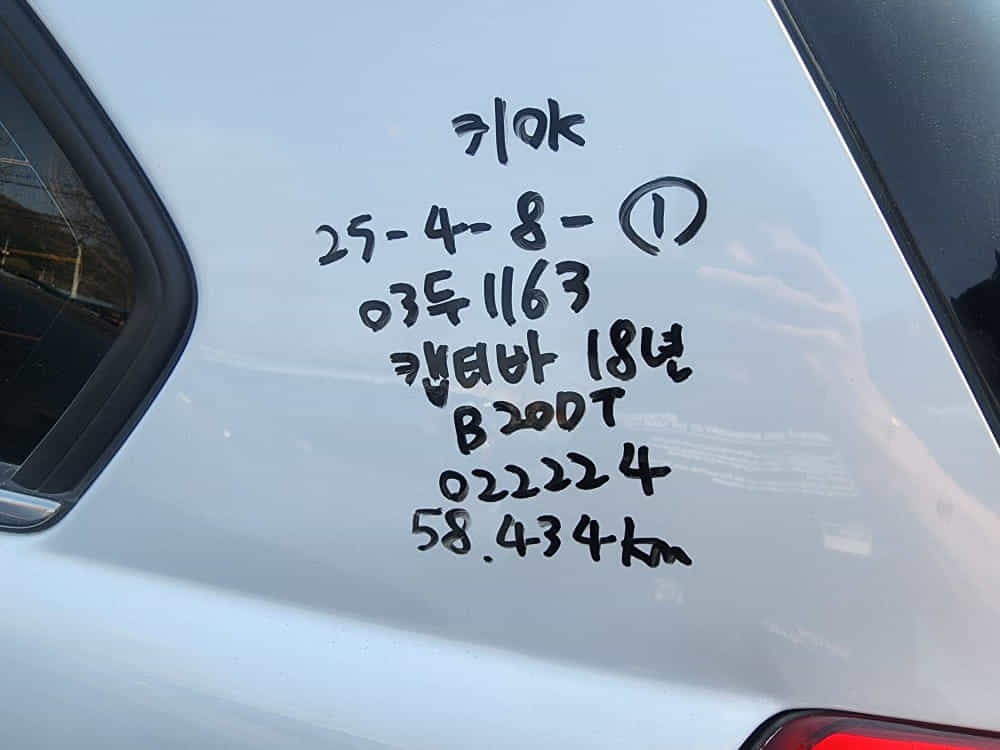 키OK
25-4-8-①
03두1163
캡티바 18년
B20DT
022224
58.434km